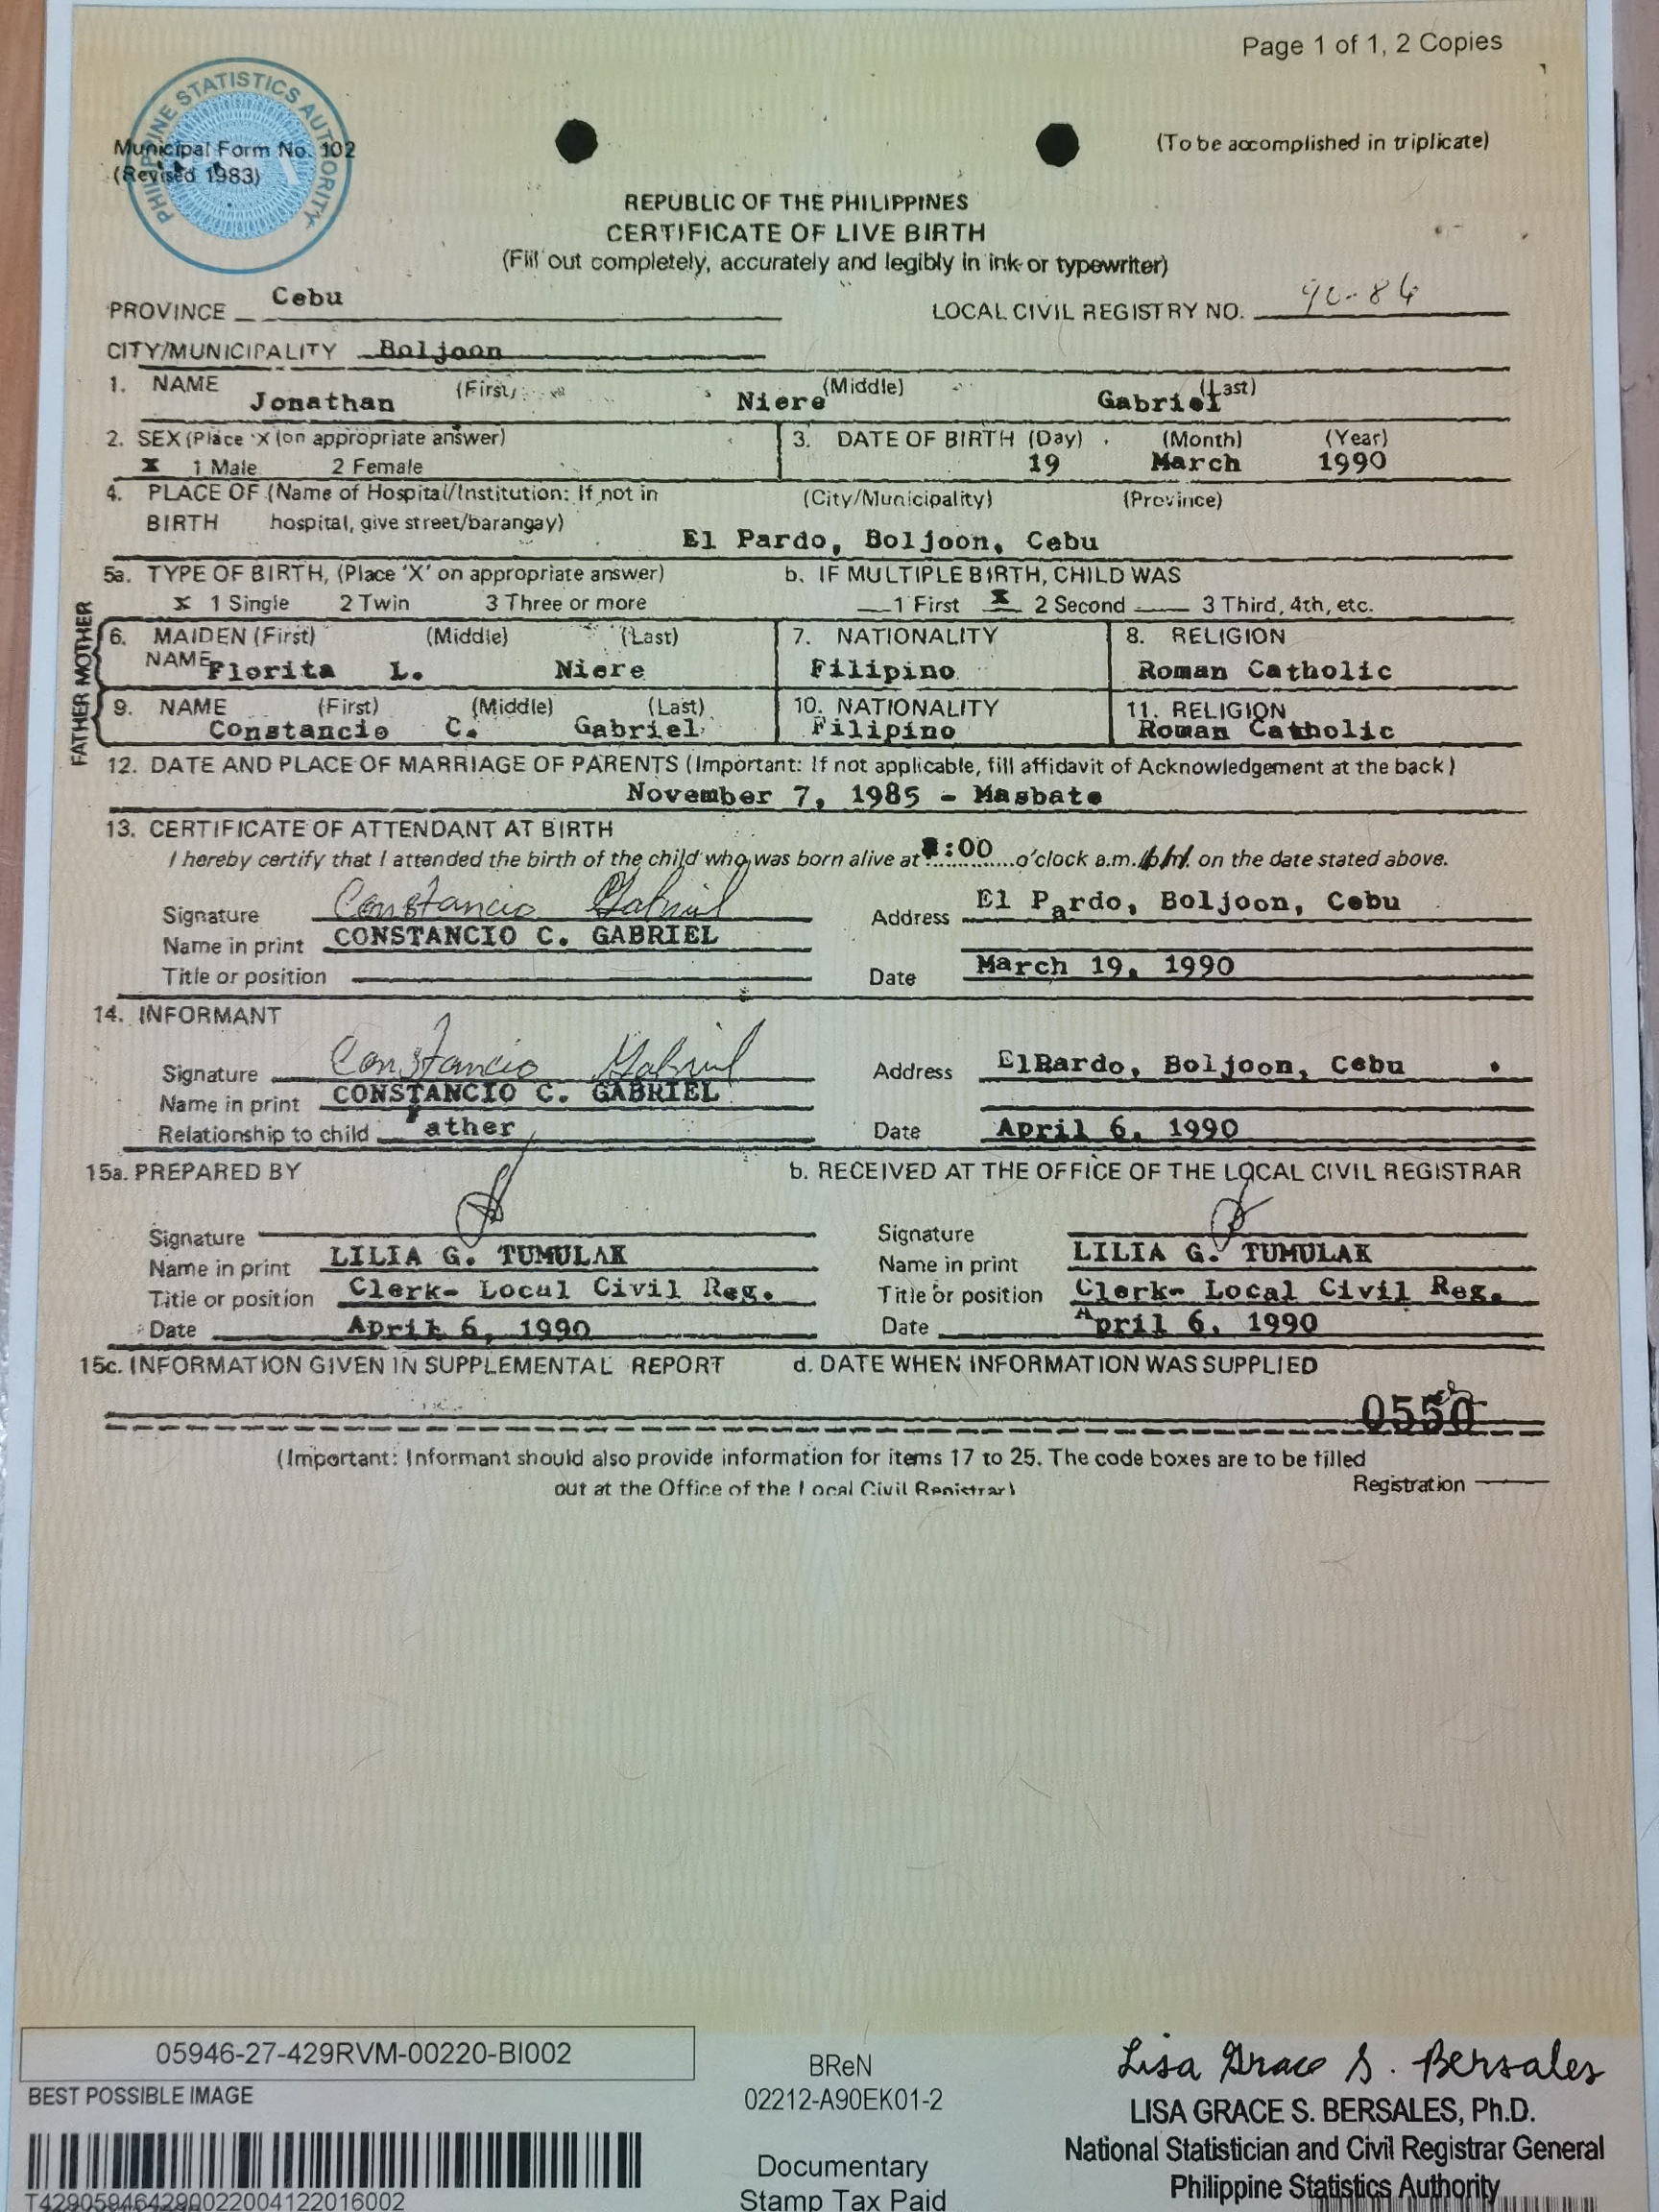 Page 1 of 1, 2 Copies
PHILIPPINE STATISTICS AUTHORITY
Municipal Form No. 102
(Revised 1983)
(To be accomplished in triplicate)
REPUBLIC OF THE PHILIPPINES
CERTIFICATE OF LIVE BIRTH
(Fill out completely, accurately and legibly in ink or typewriter)
PROVINCE Cebu LOCAL CIVIL REGISTRY NO. 90-86
CITY/MUNICIPALITY Boljoon
1. NAME (First) (Middle) (Last)
Jonathan Niere Gabriel
2. SEX (Place 'X (on appropriate answer) 3. DATE OF BIRTH (Day) (Month) (Year)
X 1 Male 2 Female 19 March 1990
4. PLACE OF (Name of Hospital/Institution: If not in (City/Municipality) (Province)
BIRTH hospital, give street/barangay)
El Pardo, Boljoon, Cebu
5a. TYPE OF BIRTH, (Place 'X' on appropriate answer) b. IF MULTIPLE BIRTH, CHILD WAS
X 1 Single 2 Twin 3 Three or more 1 First X 2 Second 3 Third, 4th, etc.
FATHER MOTHER
6. MAIDEN (First) (Middle) (Last) 7. NATIONALITY 8. RELIGION
NAME Florita L. Niere Filipino Roman Catholic
9. NAME (First) (Middle) (Last) 10. NATIONALITY 11. RELIGION
Constancio C. Gabriel Filipino Roman Catholic
12. DATE AND PLACE OF MARRIAGE OF PARENTS (Important: If not applicable, fill affidavit of Acknowledgement at the back)
November 7, 1985 - Masbate
13. CERTIFICATE OF ATTENDANT AT BIRTH
I hereby certify that I attended the birth of the child who was born alive at :00 o'clock a.m./p.m. on the date stated above.
Signature Constancio Gabriel Address El Pardo, Boljoon, Cebu
Name in print CONSTANCIO C. GABRIEL
Title or position Date March 19, 1990
14. INFORMANT
Signature Constancio Gabriel Address ElPardo, Boljoon, Cebu .
Name in print CONSTANCIO C. GABRIEL
Relationship to child Father Date April 6, 1990
15a. PREPARED BY b. RECEIVED AT THE OFFICE OF THE LOCAL CIVIL REGISTRAR
Signature Signature
Name in print LILIA G. TUMULAK Name in print LILIA G. TUMULAK
Title or position Clerk- Local Civil Reg. Title or position Clerk- Local Civil Reg.
Date April 6, 1990 Date April 6, 1990
15c. INFORMATION GIVEN IN SUPPLEMENTAL REPORT d. DATE WHEN INFORMATION WAS SUPPLIED
0550
(Important: Informant should also provide information for items 17 to 25. The code boxes are to be filled
out at the Office of the Local Civil Registrar) Registration
05946-27-429RVM-00220-BI002
BEST POSSIBLE IMAGE
T429059464290022004122016002
BReN
02212-A90EK01-2
Documentary
Stamp Tax Paid
Lisa Grace S. Bersales
LISA GRACE S. BERSALES, Ph.D.
National Statistician and Civil Registrar General
Philippine Statistics Authority